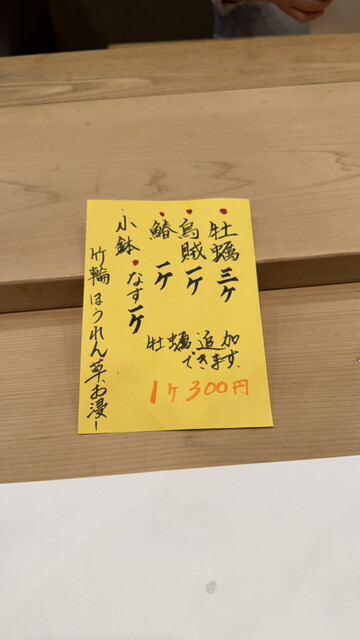 牡蠣三ケ
烏賊一ケ
鰆一ケ
なす一ケ
小鉢
竹輪ほうれん草お浸し
牡蠣追加
できます
1ケ300円